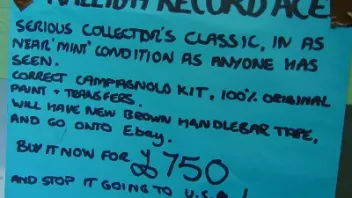 RECORD ACE
SERIOUS COLLECTOR'S CLASSIC, IN AS
NEAR 'MINT' CONDITION AS ANYONE HAS
SEEN.
CORRECT CAMPAGNOLO KIT, 100% ORIGINAL
PAINT + TRANSFERS.
WILL HAVE NEW BROWN HANDLEBAR TAPE,
AND GO ONTO Ebay.
BUY IT NOW FOR £750
AND STOP IT GOING TO U.S.